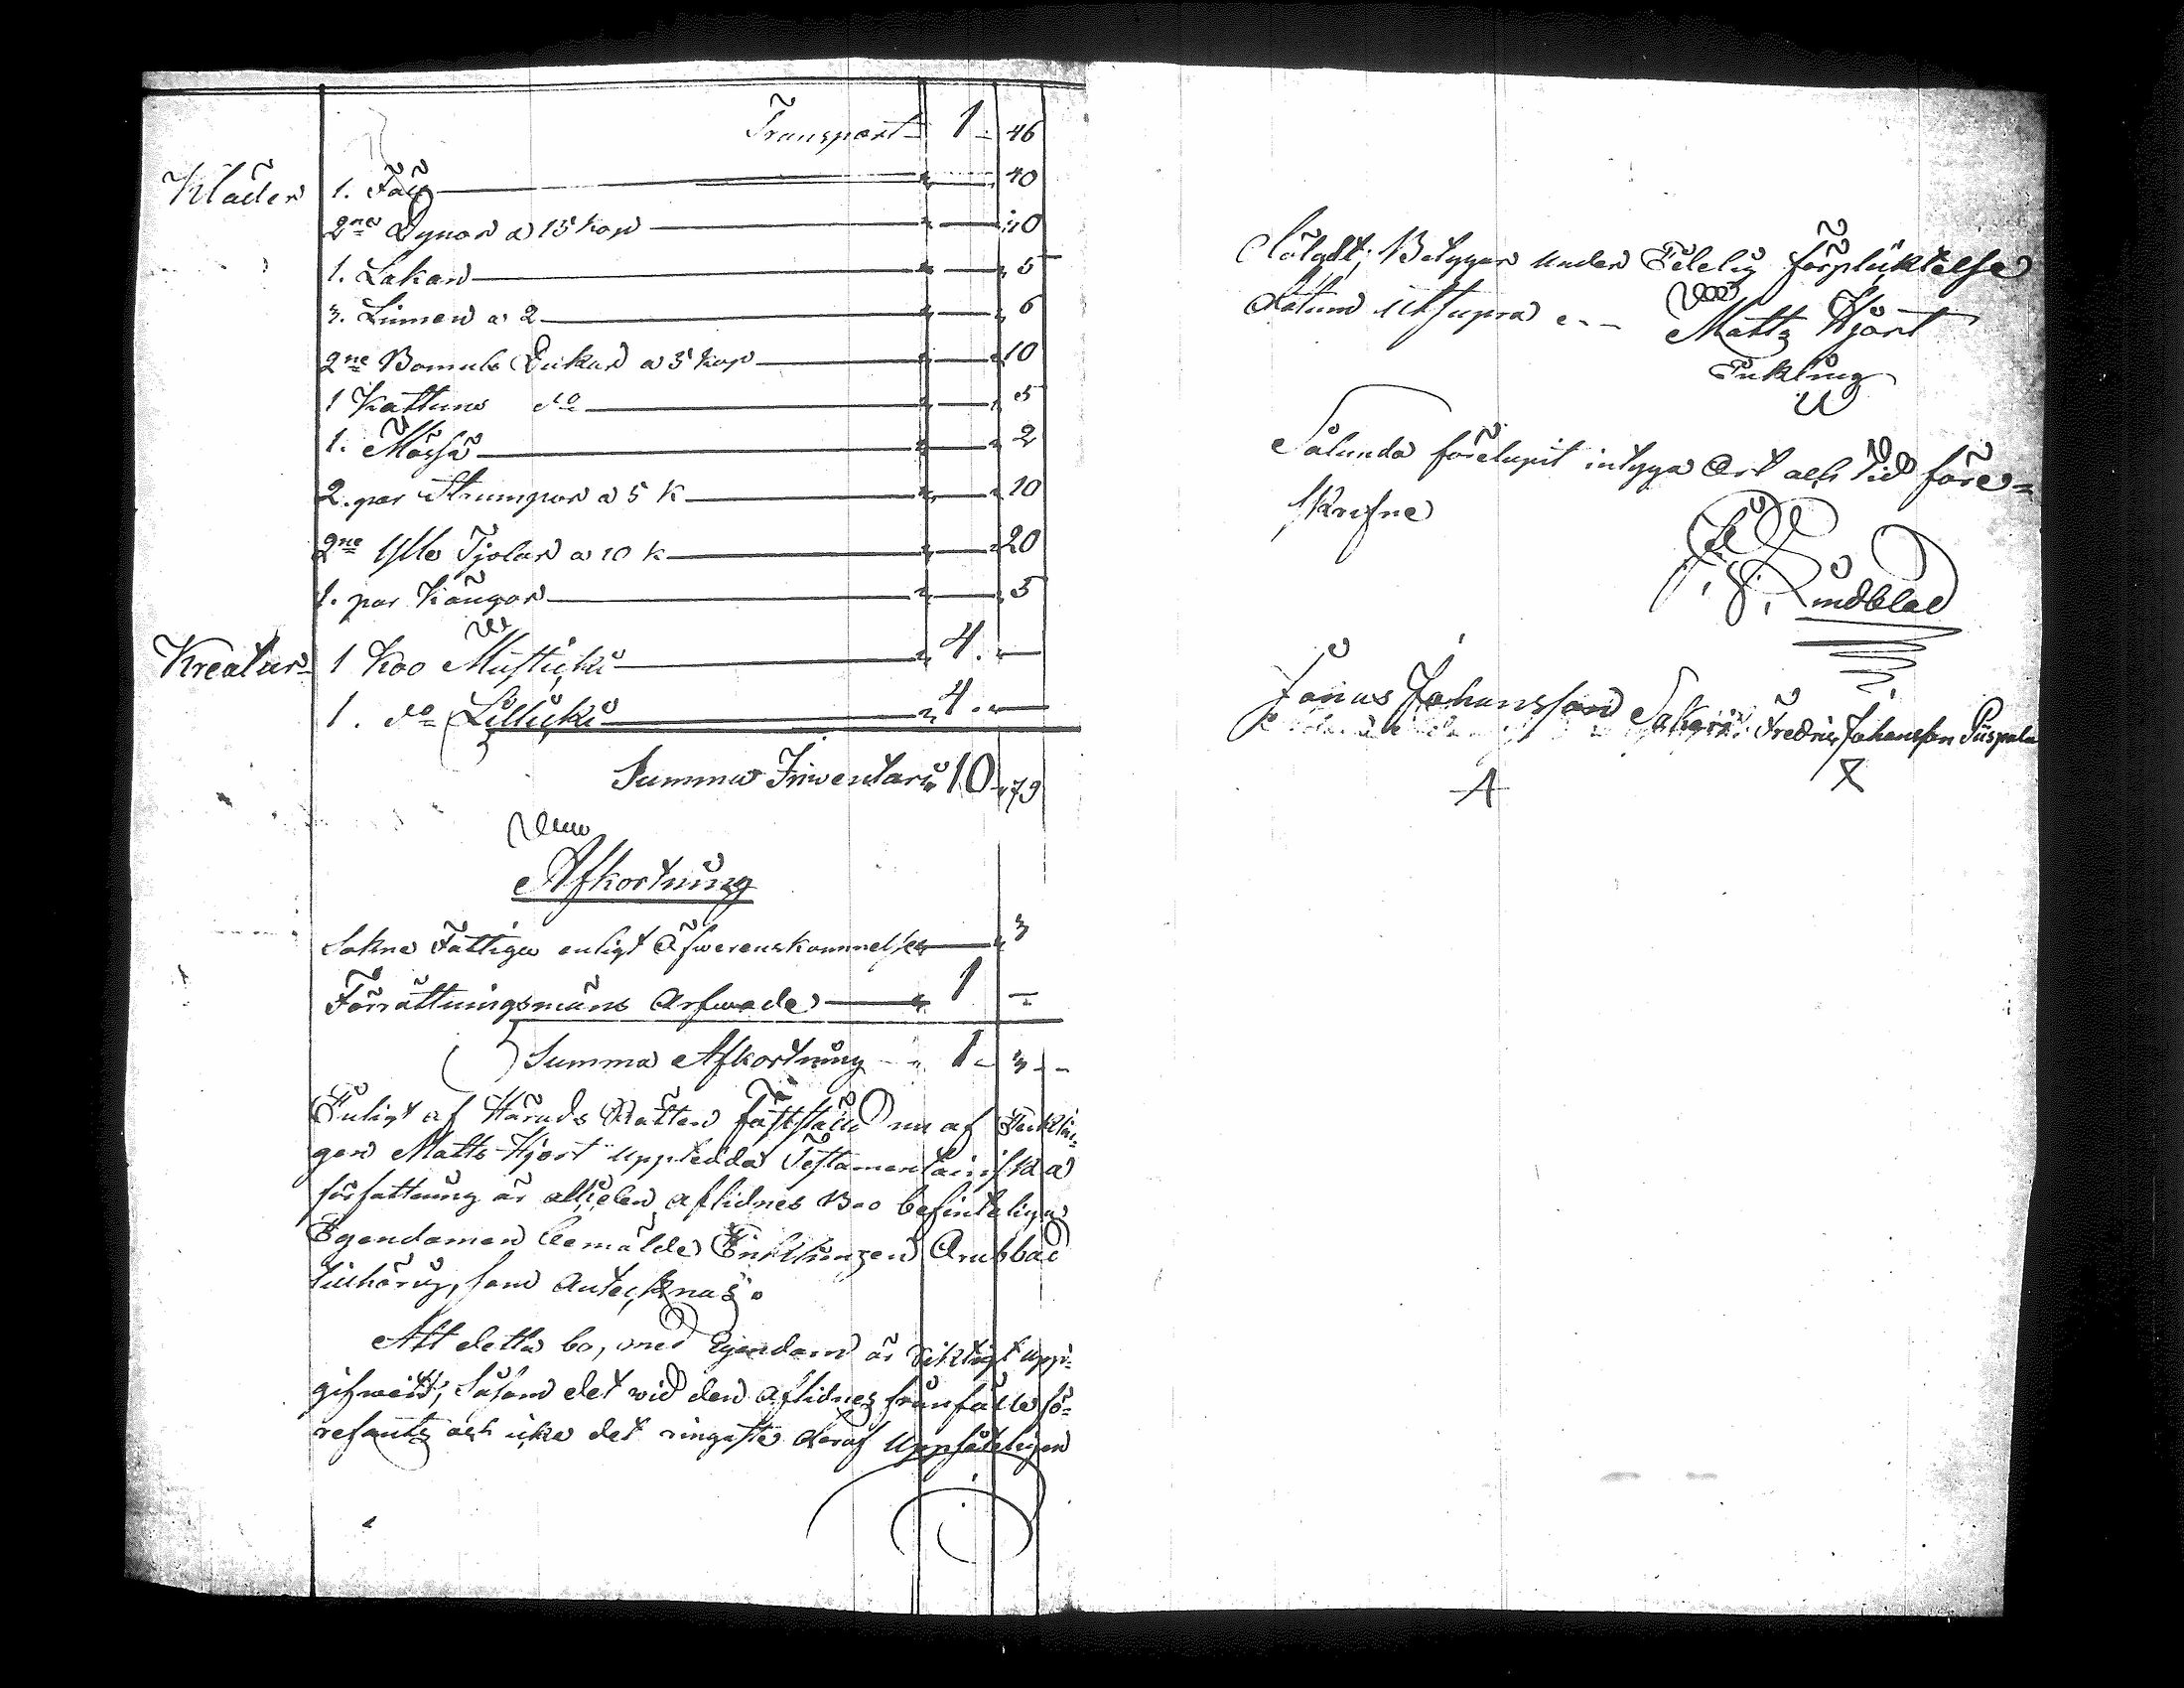 Transport 1 - 46
Kläder 1. Fäll " 40
2ne Dynor a 15 kop " 30
1. Lakan " 5
3. Linnen a 2 " 6
2ne Bomuls Dukar a 5 kop " 10
1 Kattuns do " 5
1. Mössa " 2
2. par Strumpor a 5 k " 10
2ne Ylle Tjolar a 10 k " 20
1. par Kängor " 5
Kreatur 1 Koo Mustiki " 4. —
1. do Lilliki " 4. —
Summa Inventari 10 " 79
Afkortning
Sokne Fattiga enligt Öfwerenskommelse " 3
Förrättningsmäns Arfwode " 1 —
Summa Afkortning 1 - 3 -
Enligt af Härads Rätten fastställd nu af Enklin-
gen Matts Hjort uppledda Testamentariska
författning är all i den aflidnes Boo befinteliga
Egendomen bemälde Enklingen Orubbad
tillhörig, som antecknas.
Att detta bo, med Egendom är riktigt upp-
gifweit, såsom det wid den aflidnes frånfälle fö-
refants och icke det ringaste deraf uppsåteligen
dölgdt; Betygar under Edelig förpliktelse
datum utsupra
Matts Hjort
Enkling
Sålunda förelupit intyga Ort och tid före-
skrefne
Lindblad
Jonas Johansson Fredric Johansson Piispala